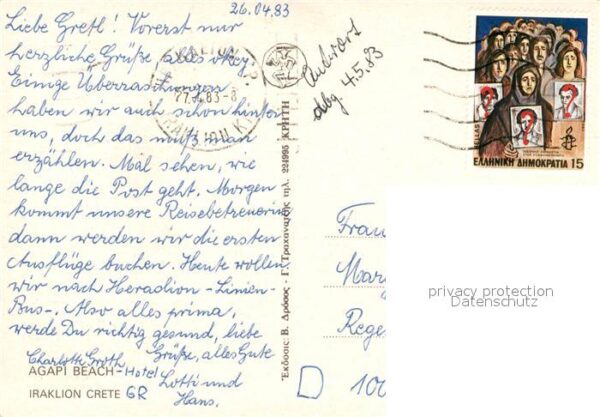 26.04.83
Liebe Gretl! Vorerst nur
herzliche Grüße, alles okey.
Einige Überraschungen
haben wir auch schon hinter
uns, doch das muß man
erzählen. Mal sehen, wie
lange die Post geht. Morgen
kommt unsere Reisebetreuerin
dann werden wir die ersten
Ausflüge buchen. Heute wollen
wir nach Heraklion - Linien-
Bus-. Also alles prima,
werde Du richtig gesund, liebe
Grüße, alles Gute
Charlotte Groth
Lotti und
Hans.
AGAPI BEACH - Hotel
IRAKLION CRETE GR
27.4.83-8
Antwort
4.5.83
Εκδοσις: Β. Δρόσος - Γ. Τραχανατζής τηλ. 224995 ΚΡΗΤΗ
ΕΛΛΗΝΙΚΗ ΔΗΜΟΚΡΑΤΙΑ 15
Frau
Mar
Rege
D 100
privacy protection
Datenschutz